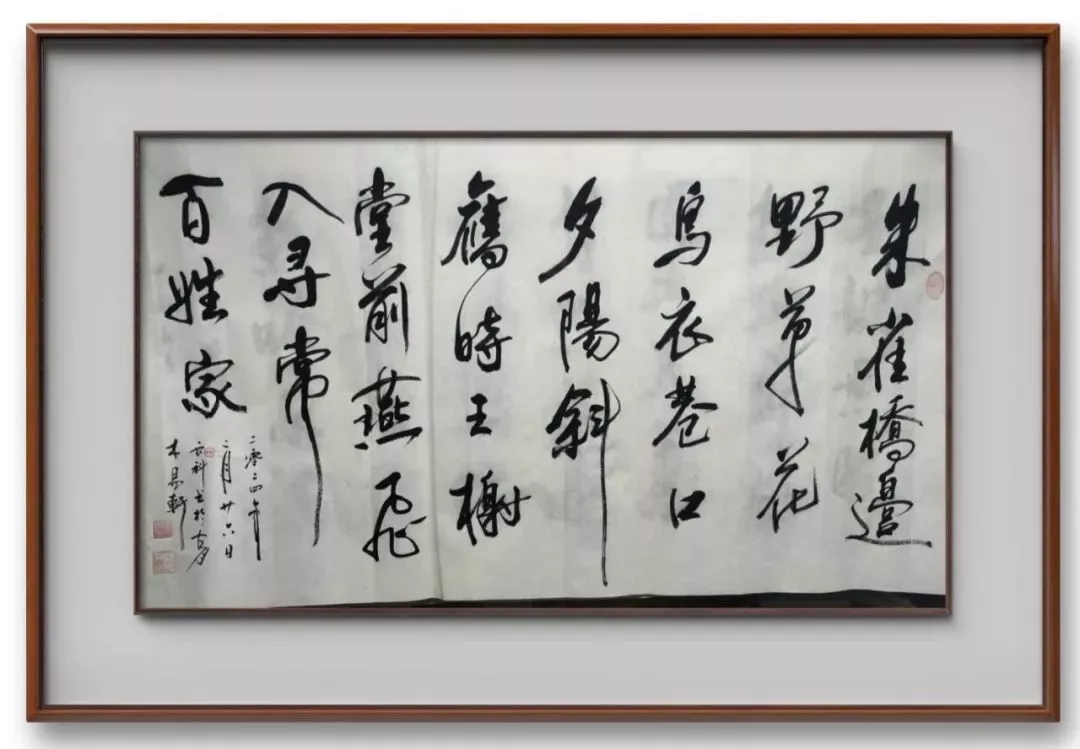 朱雀橋邊
野草花
烏衣巷口
夕陽斜
舊時王榭
堂前燕飛
入尋常
百姓家
二零二四年
二月廿六日
云科书於
木易軒